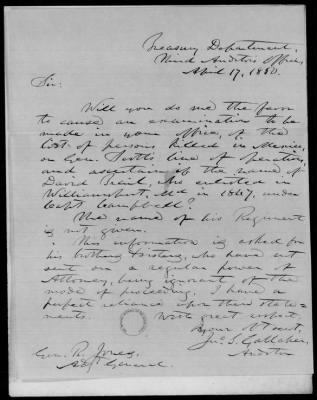 Treasury Department,
Third Auditor's Office,
April 17, 1850.
Sir:
Will you do me the favor
to cause an examination to be
made in your office, of the
list of persons killed in Mexico,
on Gen. Scott's line of operations,
and ascertain if the name of
David, who enlisted in
Williamsport, Md in 1847, under
Capt Campbell?
The name of his Regiment
is not given.
This information is asked for
his brothers & sisters, who have not
sent on a regular power of
Attorney, being ignorant of the
mode of proceeding. I have a
perfect reliance upon their state-
ments.
With great respect,
Your Obt servt,
Jno. S. Gallaher,
Auditor
Gen. R. Jones,
Adjt General.